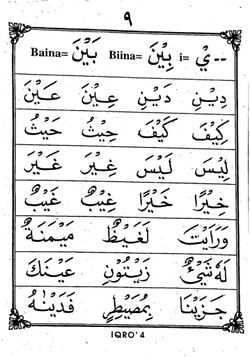 ٩
-- يْ =i بِيْنَ =Biina بَيْنَ =Baina
دِيْنِ دَيْنِ عِيْنِ عَيْنَ
كِيْفَ كَيْفَ حِيْثُ حَيْثُ
لِيْسَ لَيْسَ غِيْرَ غَيْرَ
خِيْرًا خَيْرًا غِيْبٌ غَيْبٌ
وَرَايْتَ لَغَيْظٌ مَيْمَنَةٌ
لَهُ شَيْءٌ زَيْتُوْنٍ عَيْنَكَ
جَزَيْنَا بِمُصَيْطِرٍ فَدَيْنٰهُ
IQRO'4